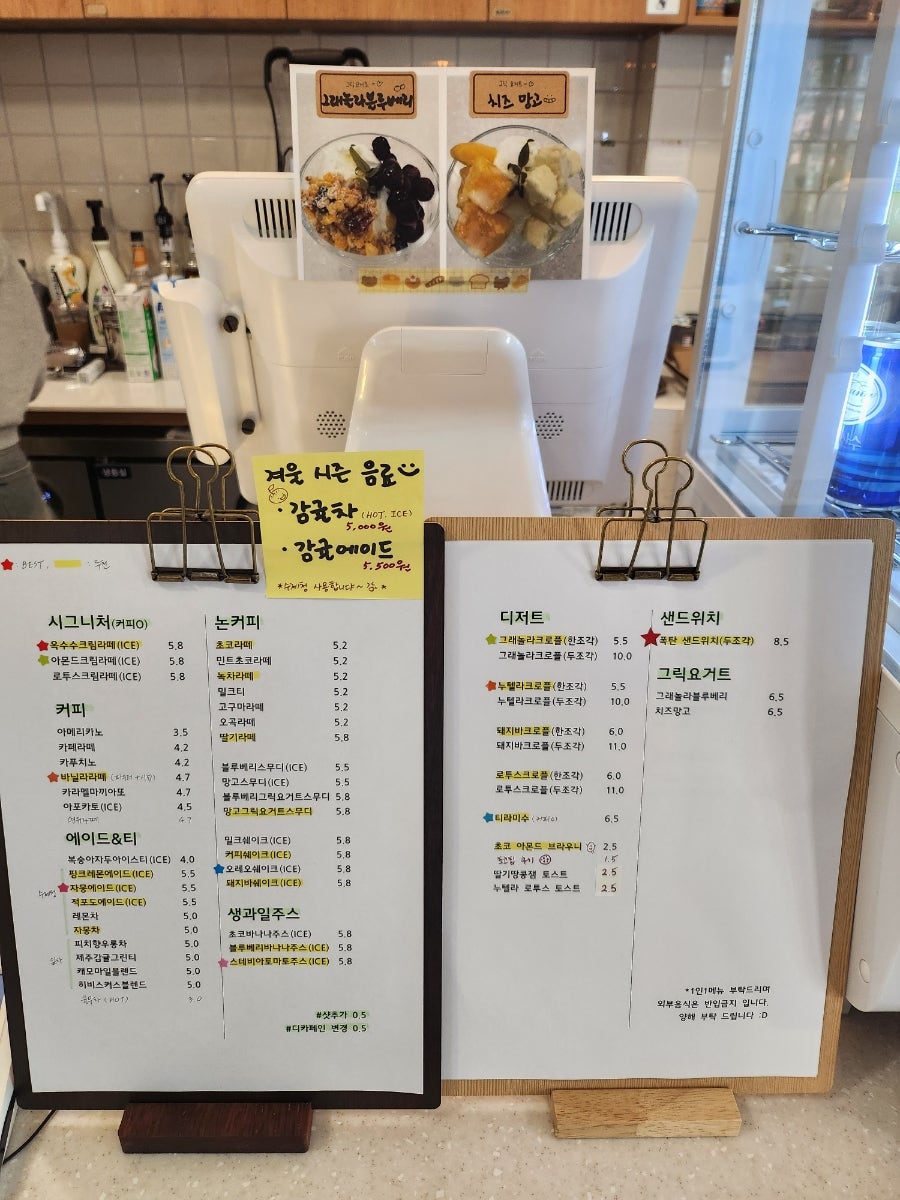 그래놀라블루베리
치즈 망고
겨울 시즌 음료
· 감귤차 (HOT, ICE)
5,000원
· 감귤에이드
5,500원
*수제청 사용합니다~
BEST, : 추천
시그니처(커피O)
옥수수크림라떼(ICE) 5.8
아몬드크림라떼(ICE) 5.8
로투스크림라떼(ICE) 5.8
커피
아메리카노 3.5
카페라떼 4.2
카푸치노 4.2
바닐라라떼 4.7
카라멜마끼아또 4.7
아포카토(ICE) 4.5
연유라떼 4.7
에이드&티
복숭아자두아이스티(ICE) 4.0
핑크레몬에이드(ICE) 5.5
수제청
자몽에이드(ICE) 5.5
적포도에이드(ICE) 5.5
레몬차 5.0
자몽차 5.0
피치향우롱차 5.0
제주감귤그린티 5.0
캐모마일블렌드 5.0
히비스커스블렌드 5.0
(HOT) 3.0
논커피
초코라떼 5.2
민트초코라떼 5.2
녹차라떼 5.2
밀크티 5.2
고구마라떼 5.2
오곡라떼 5.2
딸기라떼 5.8
블루베리스무디(ICE) 5.5
망고스무디(ICE) 5.5
블루베리그릭요거트스무디 5.8
망고그릭요거트스무디 5.8
밀크쉐이크(ICE) 5.8
커피쉐이크(ICE) 5.8
오레오쉐이크(ICE) 5.8
돼지바쉐이크(ICE) 5.8
생과일주스
초코바나나주스(ICE) 5.8
블루베리바나나주스(ICE) 5.8
스테비아토마토주스(ICE) 5.8
#샷추가 0.5
#디카페인 변경 0.5
디저트
그래놀라크로플(한조각) 5.5
그래놀라크로플(두조각) 10.0
누텔라크로플(한조각) 5.5
누텔라크로플(두조각) 10.0
돼지바크로플(한조각) 6.0
돼지바크로플(두조각) 11.0
로투스크로플(한조각) 6.0
로투스크로플(두조각) 11.0
티라미수 6.5
초코 아몬드 브라우니 2.5
초코칩 쿠키 1.5
딸기땅콩잼 토스트 2.5
누텔라 로투스 토스트 2.5
샌드위치
폭탄 샌드위치(두조각) 8.5
그릭요거트
그래놀라블루베리 6.5
치즈망고 6.5
*1인1메뉴 부탁드리며
외부음식은 반입금지 입니다.
양해 부탁 드립니다 :D